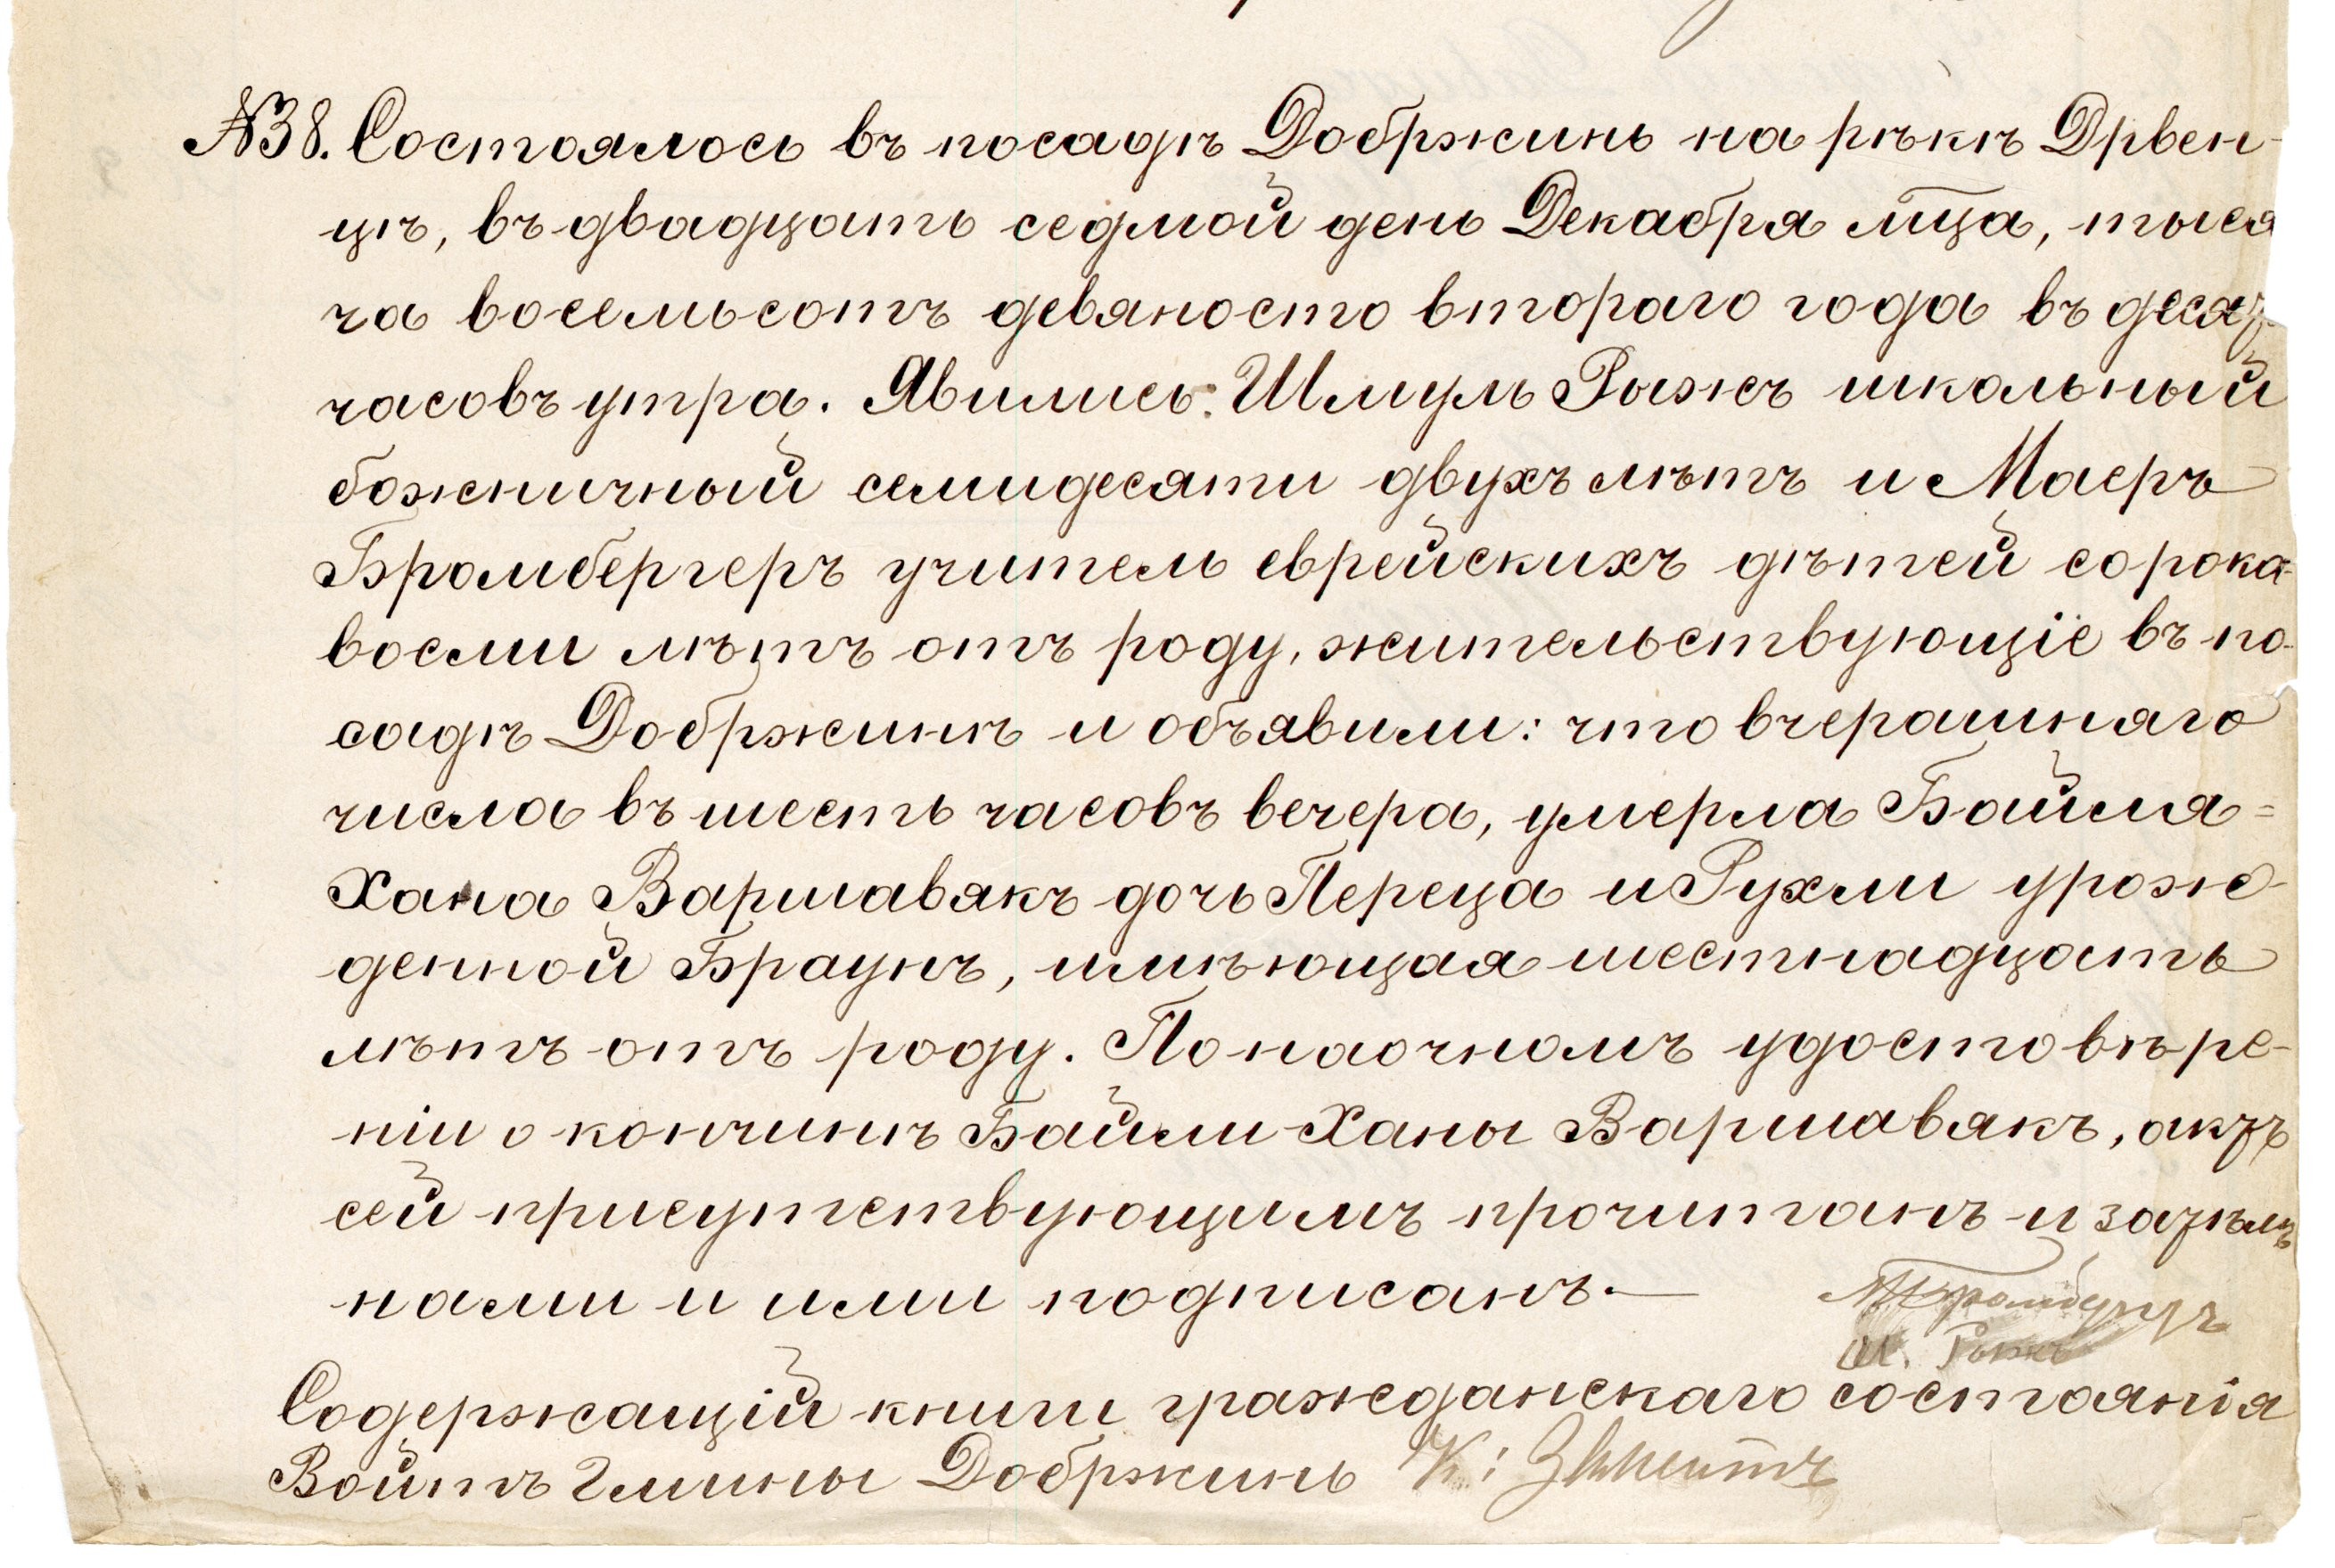 №38. Состоялось въ посадѣ Добржинь на рѣкѣ Дрвен-
цѣ, въ двадцать седмой день Декабря мца, тыся
ча восемьсотъ девяносто втораго года въ десят
часовъ утра. Явились: Шмуль Рыжъ школьный
божничный семидесяти двухъ лѣтъ и Маеръ
Бромбергеръ учитель еврейскихъ дѣтей сорока-
восми лѣтъ отъ роду, жительствующіе въ по-
садѣ Добржинѣ и объявили: что вчерашняго
числа въ шесть часовъ вечера, умерла Байля=
Хана Варшавякъ дочь Переца и Рухли урож-
денной Браунъ, имѣющая шестнадцать
лѣтъ отъ роду. По наочномъ удостовѣре-
ніи о кончинѣ Байли-Ханы Варшавякъ, актъ
сей присутствующимъ прочитанъ и затѣмъ
нами и ими подписанъ.—
М Бромбергеръ
Ш. Рыжъ
Содержащій книги гражданскаго состоянія
Войтъ Гмины Добржинь К: